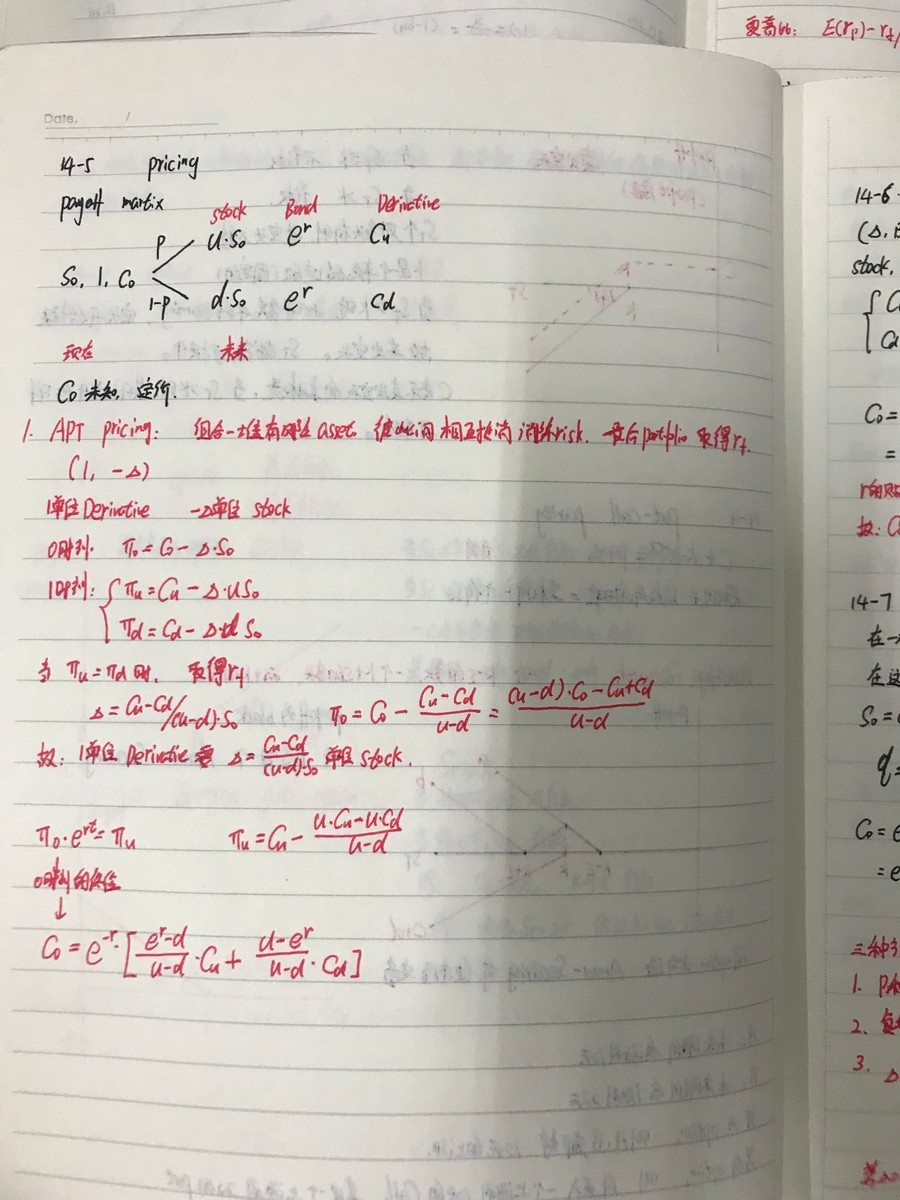 更高bb: E(rp)-rf/
Date. /
14-5 pricing
payoff martix stock Bond Derivctive
p u·S₀ eʳ Cu
S₀, 1, C₀
1-p d·S₀ eʳ Cd
现在 未来
C₀ 未知, 定价.
1. APT pricing: 组合一堆有风险 asset, 彼此间相互抵消 risk. 最后 portplio 取得rf.
(1, -Δ)
1单位 Derivative -Δ单位 stock
0时刻. π₀=C₀-Δ·S₀
1时刻: { πu=Cu-Δ·uS₀
πd=Cd-Δ·dS₀
当 πu=πd 时, 取得rf
Δ=Cu-Cd/(u-d)·S₀ π₀=C₀-(Cu-Cd)/(u-d)=((u-d)·C₀-Cu+Cd)/(u-d)
故: 1单位 Derivatie Δ=(Cu-Cd)/((u-d)·S₀) 单位 stock.
π₀·eʳᵗ=πu πu=Cu-(u·Cu-u·Cd)/(u-d)
0时刻的价值
↓
C₀=e⁻ʳ·[(eʳ-d)/(u-d)·Cu+(u-eʳ)/(u-d)·Cd]
14-6
(Δ,
stock.
{ C
Cd
C₀=
=
故: C
14-7
在一
在这
S₀=
q=
C₀=e
=e
三种
1.
2. 复
3. Δ